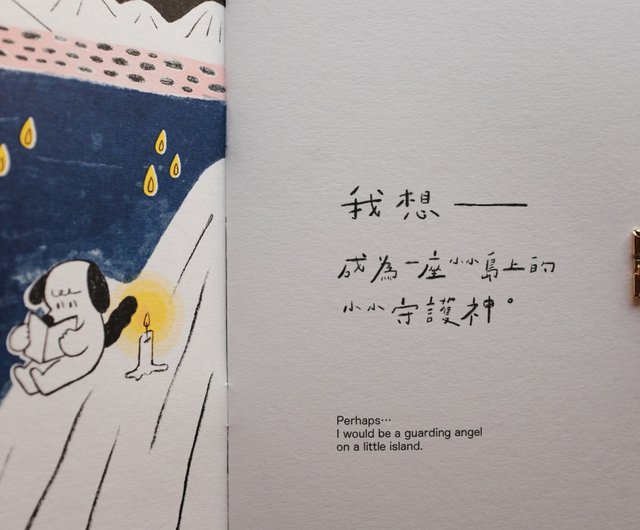 我想——
成為一座小小島上的
小小守護神。
Perhaps…
I would be a guarding angel
on a little island.